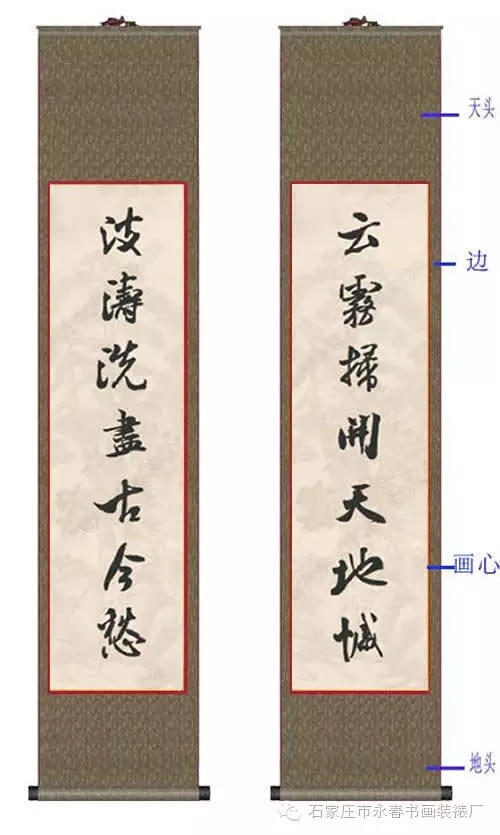 云霧掃開天地憾
波濤洗盡古今愁
天头
边
画心
地头
石家庄市永春书画装裱厂